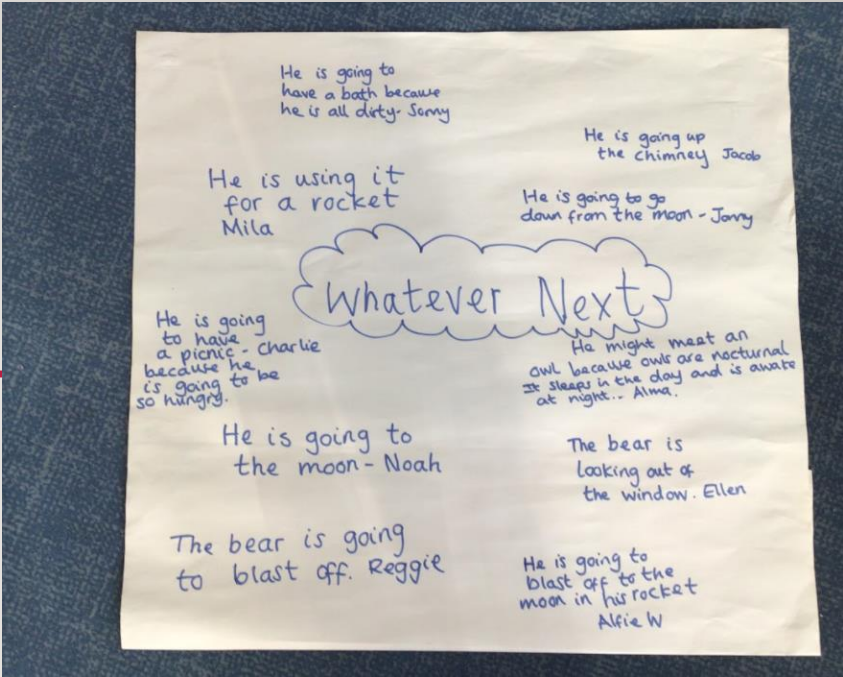 He is going to
have a bath because
he is all dirty- Sonny
He is going up
the chimney Jacob
He is using it
for a rocket
Mila
He is going to go
down from the moon - Jonny
Whatever Next
He is going
to have
a picnic - Charlie
because he
is going to be
so hungry.
He might meet an
owl because owls are nocturnal
It sleeps in the day and is awake
at night... Alma.
He is going to
the moon - Noah
The bear is
looking out of
the window. Ellen
The bear is going
to blast off. Reggie
He is going to
blast off to the
moon in his rocket
Alfie W